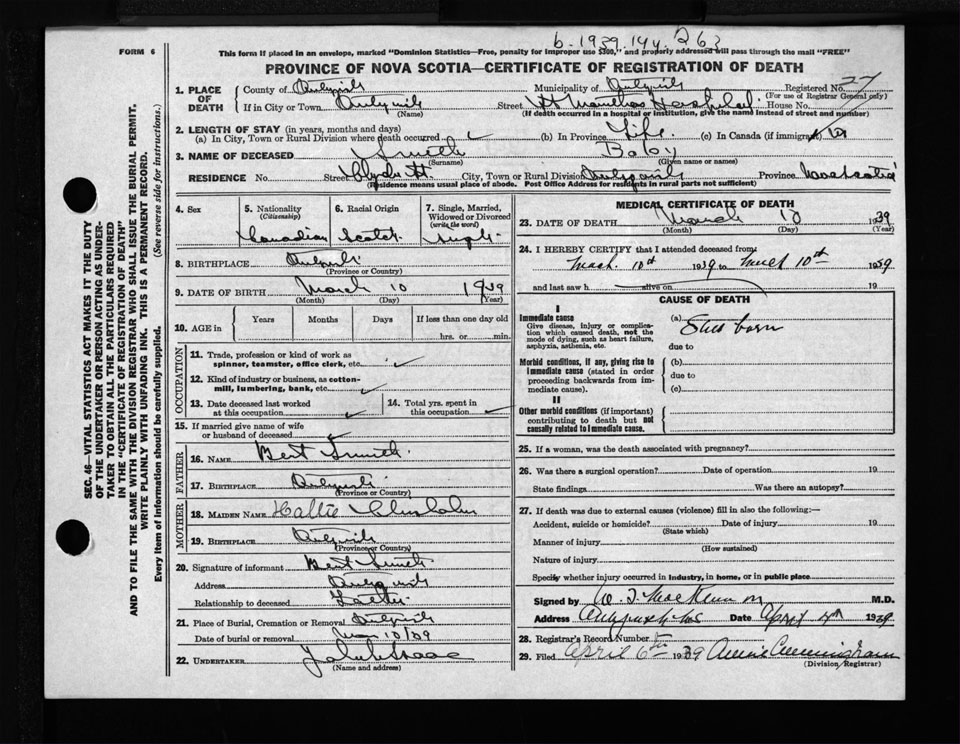 FORM 6
b. 1939. 144. 263
This form if placed in an envelope, marked "Dominion Statistics—Free, penalty for improper use $300," and properly addressed will pass through the mail "FREE"
PROVINCE OF NOVA SCOTIA—CERTIFICATE OF REGISTRATION OF DEATH
SEC. 46—VITAL STATISTICS ACT MAKES IT THE DUTY
OF THE UNDERTAKER OR PERSON ACTING AS UNDER-
TAKER TO OBTAIN ALL THE PARTICULARS REQUIRED
IN THE "CERTIFICATE OF REGISTRATION OF DEATH"
AND TO FILE THE SAME WITH THE DIVISION REGISTRAR WHO SHALL ISSUE THE BURIAL PERMIT.
WRITE PLAINLY WITH UNFADING INK. THIS IS A PERMANENT RECORD.
Every item of Information should be carefully supplied. (See reverse side for instructions.)
1. PLACE OF DEATH
County of Antigonish Municipality of Antigonish Registered No. 27
(For use of Registrar General only)
If in City or Town Antigonish Street St Marthas Hospital House No.
(Name) (If death occurred in a hospital or institution, give the name instead of street and number)
2. LENGTH OF STAY (in years, months and days)
(a) In City, Town or Rural Division where death occurred (b) In Province Life (c) In Canada (if immigrant)
3. NAME OF DECEASED Smith Baby
(Surname) (Given name or names)
RESIDENCE No. Street St. City, Town or Rural Division Antigonish Province Nova Scotia
(Residence means usual place of abode. Post Office Address for residents in rural parts not sufficient)
4. Sex
5. Nationality (Citizenship) Canadian
6. Racial Origin Scotch
7. Single, Married, Widowed or Divorced (write the word) Single
8. BIRTHPLACE Antigonish
(Province or Country)
9. DATE OF BIRTH March 10 1939
(Month) (Day) (Year)
10. AGE in Years Months Days If less than one day old
hrs. or min.
OCCUPATION
11. Trade, profession or kind of work as
spinner, teamster, office clerk, etc.
12. Kind of industry or business, as cotton-
mill, lumbering, bank, etc.
13. Date deceased last worked
at this occupation
14. Total yrs. spent in
this occupation
15. If married give name of wife
or husband of deceased
FATHER
16. NAME Bert Smith
17. BIRTHPLACE Antigonish
(Province or Country)
MOTHER
18. MAIDEN NAME Hattie Chisholm
19. BIRTHPLACE Antigonish
(Province or Country)
20. Signature of informant Bert Smith
Address Antigonish
Relationship to deceased Father
21. Place of Burial, Cremation or Removal Antigonish
Date of burial or removal Mar 10/39
22. UNDERTAKER John Isaac
(Name and address)
MEDICAL CERTIFICATE OF DEATH
23. DATE OF DEATH March 10 1939
(Month) (Day) (Year)
24. I HEREBY CERTIFY that I attended deceased from:
March 10th 1939 to March 10th 1939
and last saw h alive on 19
CAUSE OF DEATH
I
Immediate cause
Give disease, injury or complica-
tion which caused death, not the
mode of dying, such as heart failure,
asphyxia, asthenia, etc.
(a) Still born
due to
Morbid conditions, if any, giving rise to
immediate cause (stated in order
proceeding backwards from im-
mediate cause).
(b)
due to
(c)
II
Other morbid conditions (if important)
contributing to death but not
causally related to immediate cause.
25. If a woman, was the death associated with pregnancy?
26. Was there a surgical operation? Date of operation 19
State findings Was there an autopsy?
27. If death was due to external causes (violence) fill in also the following:—
Accident, suicide or homicide? Date of injury 19
(State which)
Manner of injury
(How sustained)
Nature of injury
Specify whether injury occurred in industry, in home, or in public place
Signed by W. J. MacKinnon M.D.
Address Antigonish N.S. Date April 4th 1939
28. Registrar's Record Number 5
29. Filed April 6th 1939 Annie Cunningham
(Division Registrar)